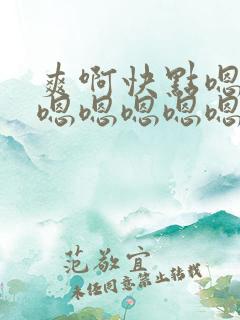 爽啊快點嗯
嗯嗯嗯嗯嗯
范敬宜
未经同意禁止转载